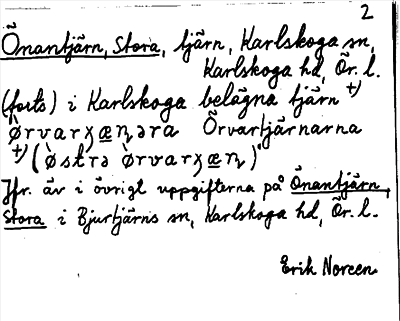 2
Önantjärn, Stora, tjärn, Karlskoga sn,
Karlskoga hd, Ör. l.
(forts) i Karlskoga belägna tjärn +)
ørvarʒæɳəra Örvartjärnarna
+) (østrə ørvarʒæɳ)
Jfr. äv i övrigt uppgifterna på Önantjärn,
Stora i Bjurtjärns sn, Karlskoga hd, Ör. l.
Erik Noreen